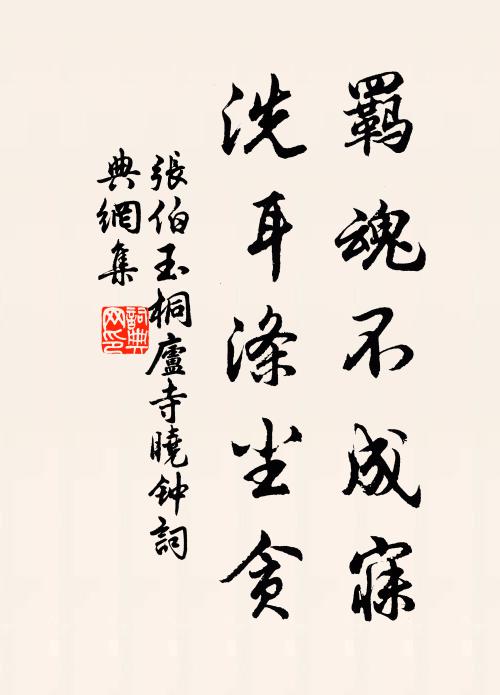 羈魂不成寐
洗耳滌尘貪
張伯玉桐廬寺曉钟詞
典網集
詞典
网印